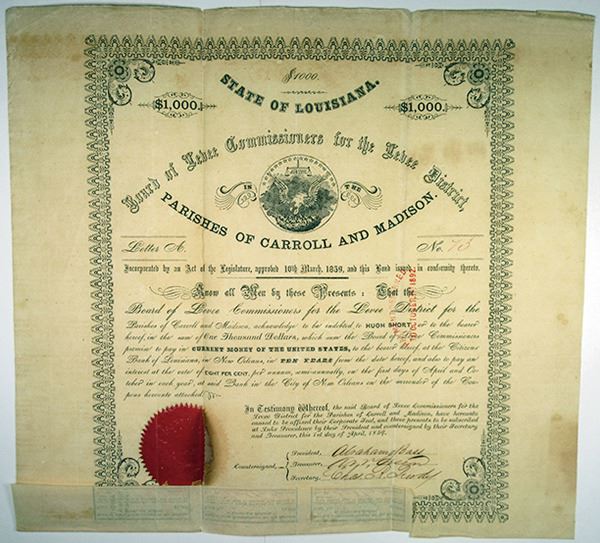 $1000.
STATE OF LOUISIANA.
$1,000. $1,000.
Board of Levee Commissioners for the Levee District,
IN THE
PARISHES OF CARROLL AND MADISON.
Letter A. No. 73
Incorporated by an Act of the Legislature, approved 10th March, 1859, and this Bond issued in conformity thereto.
Know all Men by these Presents: That the
Board of Levee Commissioners for the Levee District for the
Parishes of Carroll and Madison, acknowledge to be indebted to HUGH SHORT, or to the bearer
hereof, in the sum of One Thousand Dollars, which sum the Board of Commissioners
promise to pay in CURRENT MONEY OF THE UNITED STATES, to the bearer hereof at the Citizens
Bank of Louisiana, in New Orleans, in TEN YEARS from the date hereof, and also to pay an
interest at the rate of EIGHT PER CENT. per annum, semi-annually, on the first days of April and Oc-
tober in each year, at said Bank in the City of New Orleans on the surrender of the Cou-
pons hereunto attached.
In Testimony Whereof, the said Board of Levee Commissioners for the
Levee District for the Parishes of Carroll and Madison, have hereunto
caused to be affixed their Corporate Seal, and these presents to be subscribed
at Lake Providence by their President and countersigned by their Secretary
and Treasurer, this 1st day of April, 1859.
President,
Countersigned, Treasurer,
Secretary,